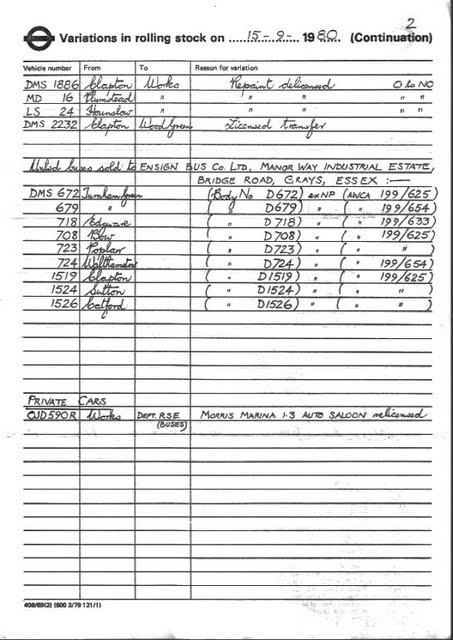 2
Variations in rolling stock on ..... 15-9- ..... 1980 ..... (Continuation)
Vehicle number From To Reason for variation
DMS 1886 Clapton Works Repaint delicensed O to NO
MD 16 Plumstead " " " " "
LS 24 Hounslow " " " " "
DMS 2232 Clapton Wood Green Licensed transfer
buses sold to ENSIGN BUS Co. LTD, MANOR WAY INDUSTRIAL ESTATE,
BRIDGE ROAD, GRAYS, ESSEX :—
DMS 672 Turnham Green (Body No D672) ex NP (ANCA 199/625)
679 " ( " D679) " ( " 199/654)
718 Edgware ( " D718) " ( " 199/633)
708 Bow ( " D708) " ( " 199/625)
723 Poplar ( " D723) " ( " " )
724 Walthamstow ( " D724) " ( " 199/654)
1519 Clapton ( " D1519) " ( " 199/625)
1524 Sutton ( " D1524) " ( " " )
1526 Catford ( " D1526) " ( " " )
PRIVATE CARS
OJD590R Works DEPT. RSE MORRIS MARINA 1·3 AUTO SALOON relicensed
(BUSES)
408/69(2) (600 2/79 121/1)